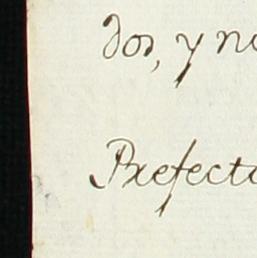 dos, y no
Prefecto